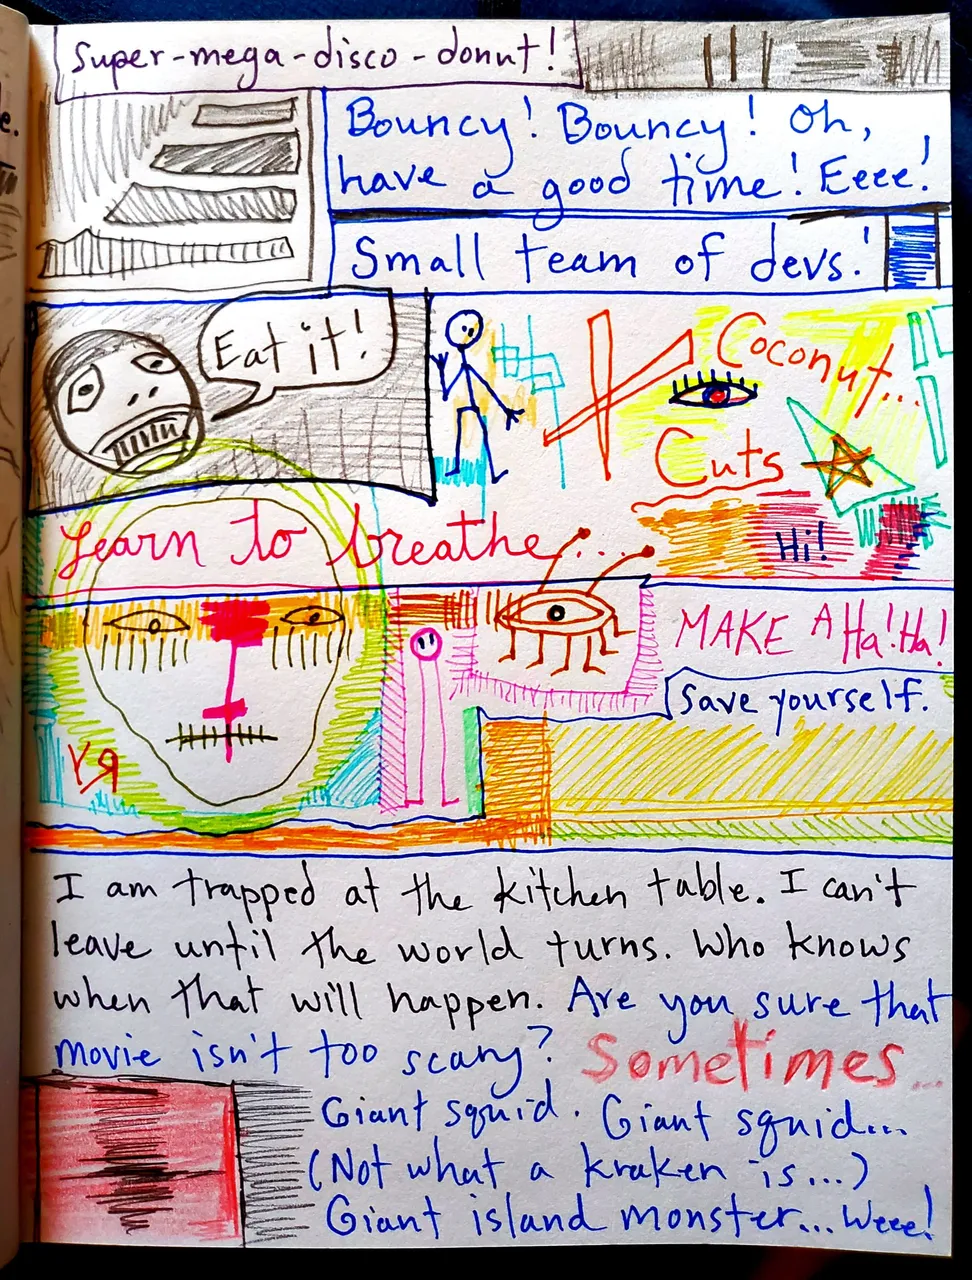 Super-mega-disco-donut!
Bouncy! Bouncy! Oh,
have a good time! Eeee!
Small team of devs!
Eat it!
Coconut...
Cuts
Learn to breathe...
Hi!
MAKE A Ha! Ha!
Save yourself.
I am trapped at the kitchen table. I can't
leave until the world turns. Who knows
when that will happen. Are you sure that
movie isn't too scary? Sometimes...
Giant squid. Giant squid...
(Not what a kraken is...)
Giant island monster... Weee!